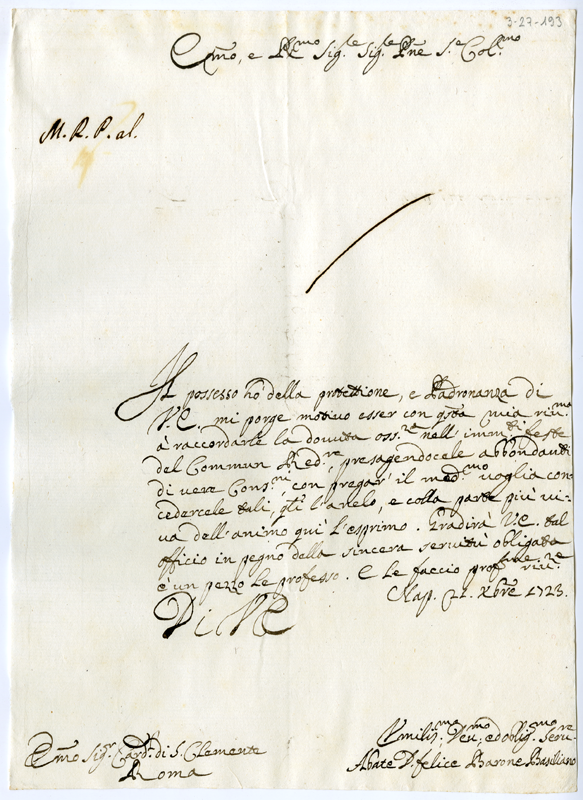 3-27-193
Emo, e Rmo Sig.re Sig.re Pne S.e Col.mo
M. R. P. al.
Il possesso hò della protettione, e Padronanza di
V.E. mi porge motivo esser con qsta mia riv.ma
à raccordarle la dovuta oss.ze nell'imm.ti feste
del Commun Red.re, presagendocele abbondanti
di vere Cons.ni, con pregar' il med.mo voglia con
cedercele tali, qli l'anelo, e colla parte più vi-
va dell'animo quì l'esprimo. Gradirà V.E. tal
officio in pegno della sincera servitù obligata
è un pezzo le professo. E le faccio prof. riv.ze
Nap. 21. Xbre 1723.
Di V.E.
Emo Sig.r Card.l di S. Clemente
Roma
Umilis.mo Dev.mo ed oblig.mo Serv.re
Abate D. Felice Barone Basiliano